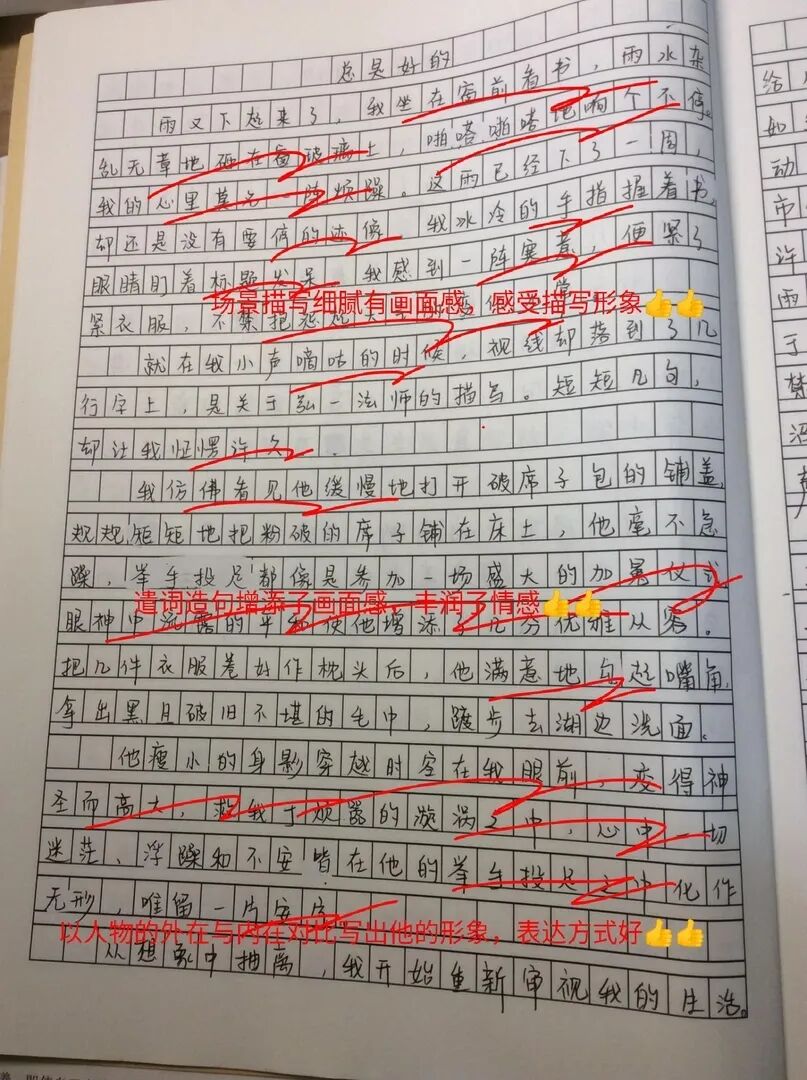 总是好的
雨又下起来了，我坐在窗前看书，雨水杂
乱无章地砸在窗玻璃上，啪嗒啪嗒地响个不停。
我的心里莫名一阵烦躁。这雨已经下了一周，
却还是没有要停的迹像 我冰冷的手指握着书，
眼睛盯着标题发呆 我感到一阵寒意，便紧了
场景描写细腻有画面感，感受描写形象👍👍
紧衣服，不禁把
就在我小声嘀咕的时候，视线却落到了几
行字上，是关于弘一法师的描写。短短几句，
却让我怔愣许久．
我仿佛看见他缓慢地打开破席子包的铺盖，
规规矩矩地把粉破的席子铺在床上，他毫不急
躁，举手投足都像是参加一场盛大的加冕仪式
遣词造句增添了画面感，丰润了情感👍👍
眼神中流露的平和使他增添了几分优雅从容。
把几件衣服卷好作枕头后，他满意地勾起嘴角，
拿出黑且破旧不堪的毛巾，踱步去湖边洗面。
他瘦小的身影穿越时空在我眼前，变得神
圣而高大，救我于烦嚣的漩涡之中，心中一切
迷茫、浮躁和不安皆在他的举手投足之中化作
无形，唯留一片安
以人物的外在与内在对比写出他的形象，表达方式好👍👍
从想象中抽离，我开始重新审视我的生活。
给
如
动
市
许
雨
于